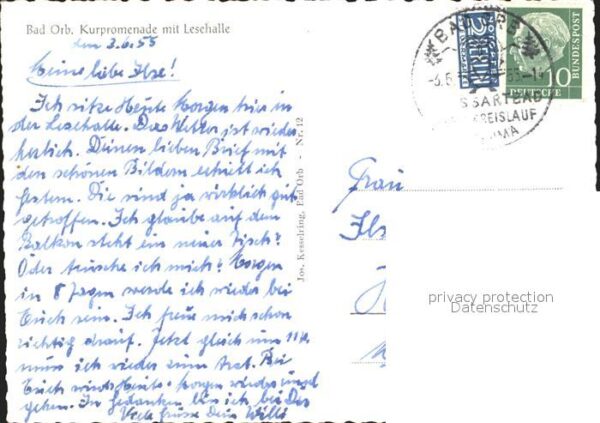 Bad Orb. Kurpromenade mit Lesehalle
den 3.6.55
Meine liebe Ilse!
Ich sitze Heute Morgen hier in
der Lesehalle. Das Wetter ist wieder
herlich. Deinen lieben Brief mit
den schönen Bildern erhielt ich
gestern. Die sind ja wirklich gut
getroffen. Ich glaube auf dem
Balkon steht ein neuer Tisch?
Oder täusche ich mich? Morgen
in 8 Tagen werde ich wieder bei
Euch sein. Ich freue mich schon
richtig drauf. Jetzt gleich um 11 Uhr
muss ich wieder zum Arzt. Bei
Euch wird's Heute Morgen wieder rund
gehen. In Gedanken bin ich bei Dir
Viele Grüsse Dein Willi
Jos. Kesselring, Bad Orb - Nr. 12
BAD ORB
SSARTBAD
KREISLAUF
NOTOPFER
2
BERLIN
DEUTSCHE
BUNDESPOST
10
Frau
Ils
privacy protection
Datenschutz